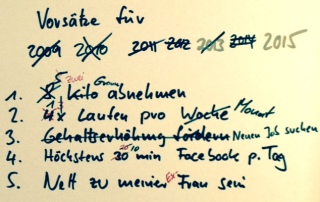 Vorsätze für
2009 2010 2011 2012 2013 2014 2015
1. 8 5 Kilo zwei Gramm abnehmen
2. 4x 1x Laufen pro Woche Monat
3. Gehaltserhöhung fordern Neuen Job suchen
4. Höchstens 30 20 10 min Facebook p. Tag
5. Nett zu meiner Ex- Frau sein